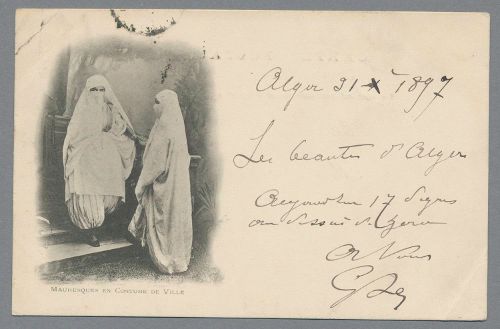 Alger 31 X 1897
Les beautés d'Alger
Aujourd'hui 17 degrés
au dessus de zero
A Vous
MAURESQUES EN COSTUME DE VILLE